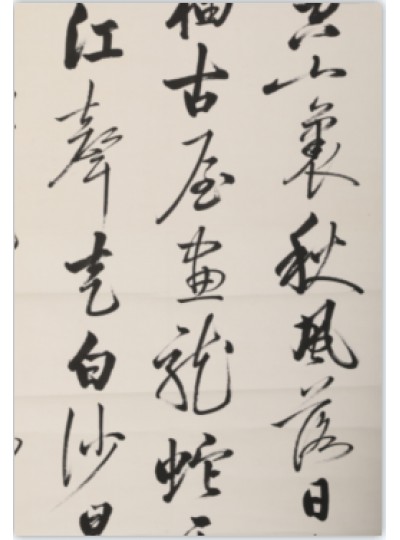 空山裏秋風落日
柚古屋畫龍蛇
江聲走白沙